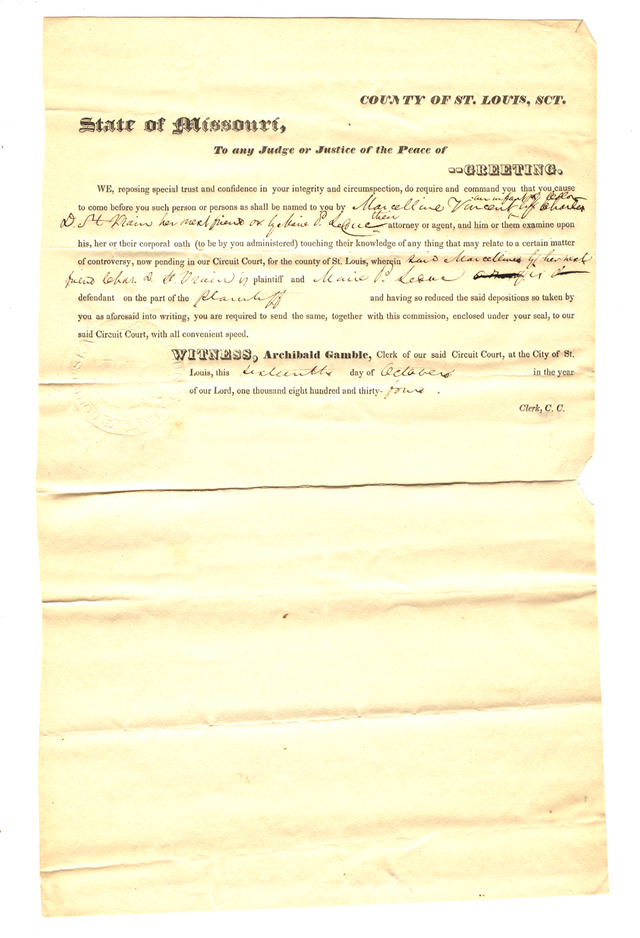 COUNTY OF ST. LOUIS, SCT.
State of Missouri,
To any Judge or Justice of the Peace of
--GREETING.
WE, reposing special trust and confidence in your integrity and circumspection, do require and command you that you cause
an infant of Color
to come before you such person or persons as shall be named to you by Marcelline Vincent by Charles
D. St Vrain her next friend or by Marie P. Leduc their attorney or agent, and him or them examine upon
his, her or their corporal oath (to be by you administered) touching their knowledge of any thing that may relate to a certain matter
of controversy, now pending in our Circuit Court, for the county of St. Louis, wherein said Marcelline by her next
friend Chas. D. St. Vrain is plaintiff and Marie P. Leduc is
defendant on the part of the plaintiff and having so reduced the said depositions so taken by
you as aforesaid into writing, you are required to send the same, together with this commission, enclosed under your seal, to our
said Circuit Court, with all convenient speed.
WITNESS, Archibald Gamble, Clerk of our said Circuit Court, at the City of St.
Louis, this sixteenth day of October in the year
of our Lord, one thousand eight hundred and thirty-four.
Clerk, C. C.